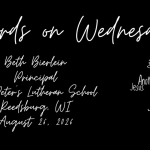 ords on Wednesda
Beth Bierlein
Principal
Peter's Lutheran School
Reedsburg, WI
August 26, 2026
Jesus